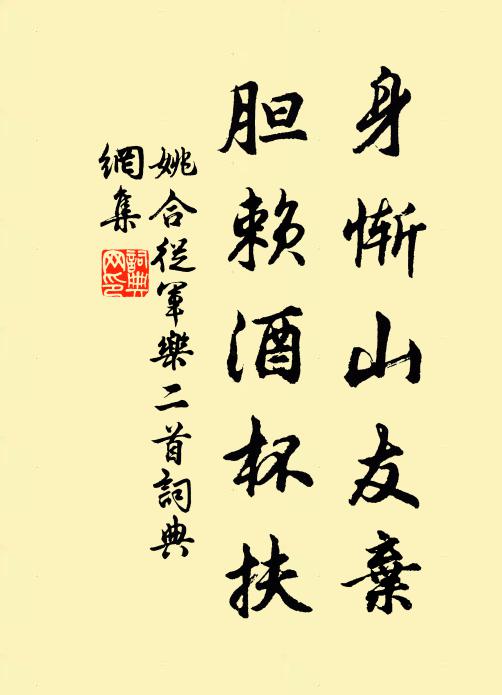 身慚山友棄
胆赖酒杯扶
姚合從軍樂二首詞典
網集
詞典
网印